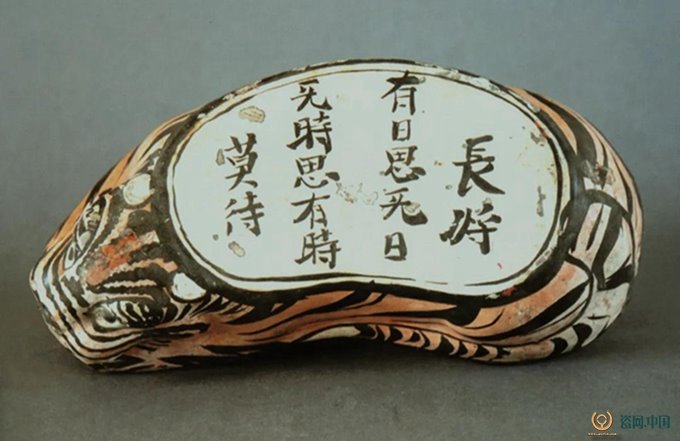 長将
有日思无日
无時思有時
莫待
瓷网.中国